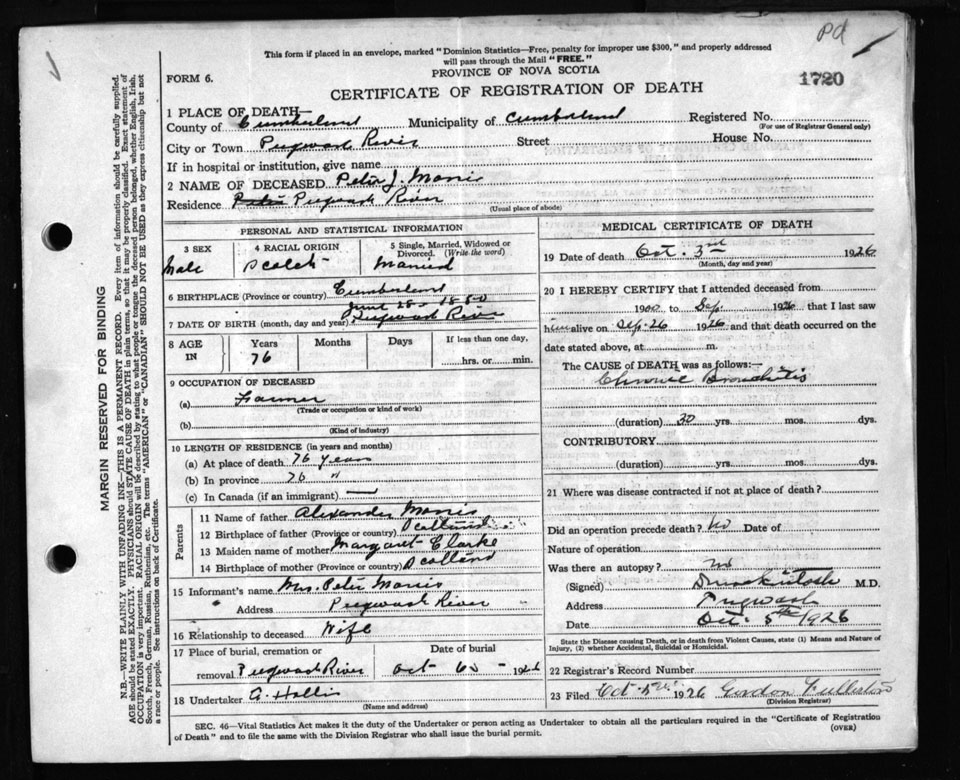 Pd
This form if placed in an envelope, marked "Dominion Statistics—Free, penalty for improper use $300," and properly addressed
will pass through the Mail "FREE."
FORM 6.
PROVINCE OF NOVA SCOTIA
1720
CERTIFICATE OF REGISTRATION OF DEATH
1 PLACE OF DEATH—
County of Cumberland Municipality of Cumberland Registered No.
(For use of Registrar General only)
City or Town Pugwash River Street House No.
If in hospital or institution, give name
2 NAME OF DECEASED Peter J. Morris
Residence Peter Pugwash River
(Usual place of abode)
PERSONAL AND STATISTICAL INFORMATION
3 SEX 4 RACIAL ORIGIN 5 Single, Married, Widowed or
Divorced. (Write the word)
Male Scotch Married
6 BIRTHPLACE (Province or country) Cumberland
June 28 1850
7 DATE OF BIRTH (month, day and year) Pugwash River
8 AGE IN Years Months Days If less than one day,
76 hrs. or min.
9 OCCUPATION OF DECEASED
(a) Farmer
(Trade or occupation or kind of work)
(b)
(Kind of industry)
10 LENGTH OF RESIDENCE (in years and months)
(a) At place of death 76 years
(b) In province 76 "
(c) In Canada (if an immigrant) —
Parents
11 Name of father Alexander Morris
12 Birthplace of father (Province or country) Scotland
13 Maiden name of mother Margaret Clarke
14 Birthplace of mother (Province or country) Scotland
15 Informant's name Mrs. Peter Morris
Address Pugwash River
16 Relationship to deceased Wife
17 Place of burial, cremation or Date of burial
removal Pugwash River Oct 6 1926
18 Undertaker G. Hollis
(Name and address)
MEDICAL CERTIFICATE OF DEATH
19 Date of death Oct. 3rd 1926
(Month, day and year)
20 I HEREBY CERTIFY that I attended deceased from
1900 to Sep. 1926 that I last saw
him alive on Sep. 26 1926 and that death occurred on the
date stated above, at m.
The CAUSE OF DEATH was as follows:—
Chronic Bronchitis
(duration) 30 yrs. mos. dys.
CONTRIBUTORY
(duration) yrs. mos. dys.
21 Where was disease contracted if not at place of death?
Did an operation precede death? No Date of
Nature of operation
Was there an autopsy? no
(Signed) M.D.
Address Pugwash
Date Oct. 5th 1926
State the Disease causing Death, or in death from Violent Causes, state (1) Means and Nature of
Injury, (2) whether Accidental, Suicidal or Homicidal.
22 Registrar's Record Number
23 Filed Oct. 5th 1926 Gordon Fullerton
(Division Registrar)
SEC. 46—Vital Statistics Act makes it the duty of the Undertaker or person acting as Undertaker to obtain all the particulars required in the "Certificate of Registration
of Death" and to file the same with the Division Registrar who shall issue the burial permit.
(OVER)
MARGIN RESERVED FOR BINDING
N.B.—WRITE PLAINLY WITH UNFADING INK—THIS IS A PERMANENT RECORD. Every item of information should be carefully supplied.
AGE should be stated EXACTLY. PHYSICIANS should STATE CAUSE OF DEATH in plain terms, so that it may be properly classified. Exact statement of
OCCUPATION is very important. RACIAL ORIGIN will be described by stating to what people or tongue the deceased person belonged, whether English, Irish,
Scotch, French, German, Russian, Ruthenian, etc. The terms "AMERICAN" or "CANADIAN" SHOULD NOT BE USED as they express citizenship but not
a race or people. See instructions on back of Certificate.